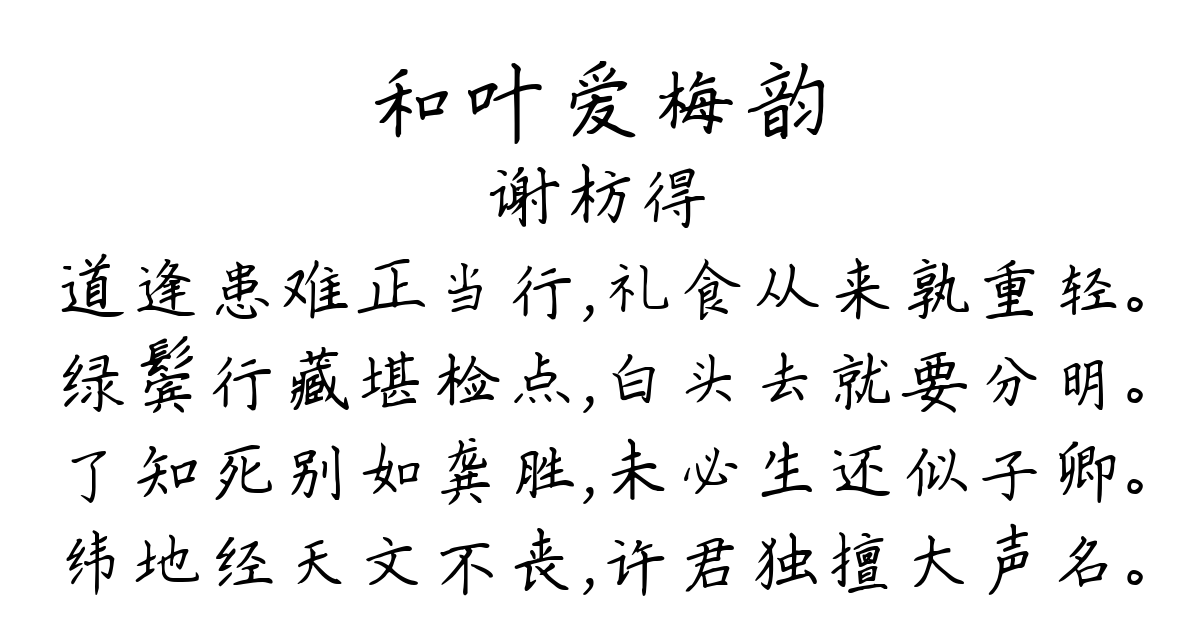 和叶爱梅韵
谢枋得
道逢患难正当行,礼食从来孰重轻。
绿鬓行藏堪检点,白头去就要分明。
了知死别如龚胜,未必生还似子卿。
纬地经天文不丧,许君独擅大声名。